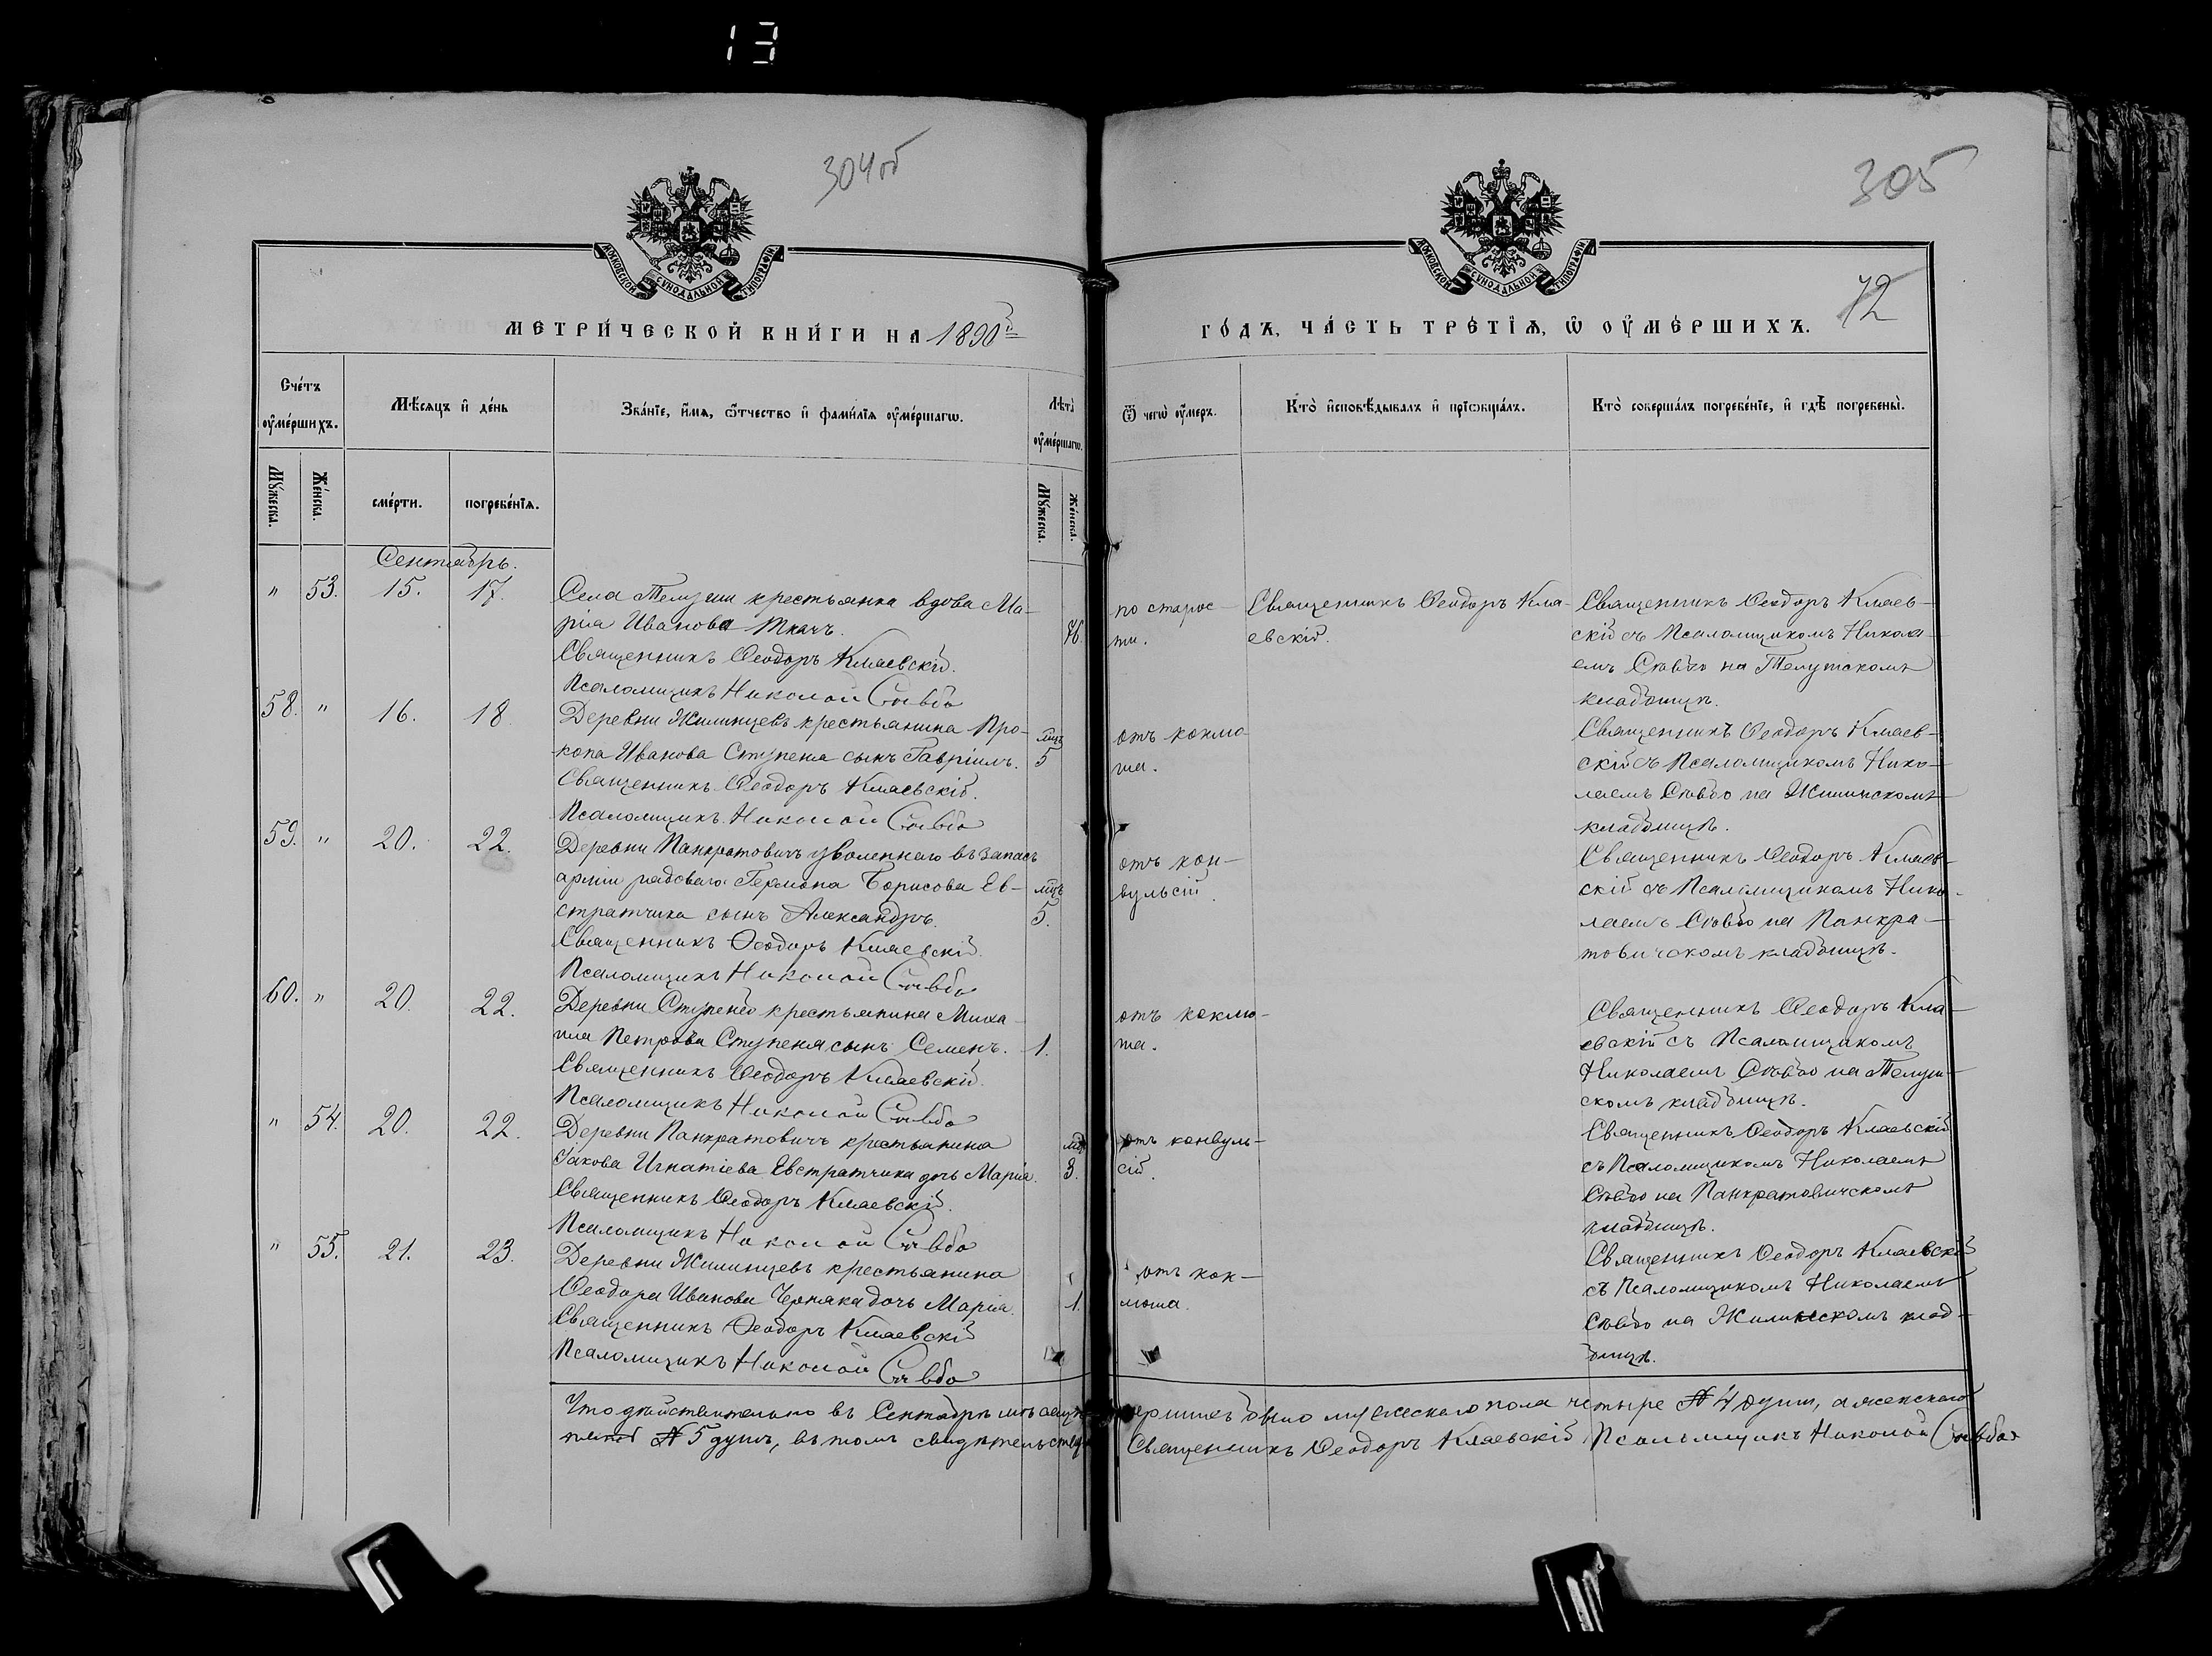 13
304об
305
72
МОСКОВСКОЙ СѴНОДАЛЬНОЙ ТИПОГРАФІИ
МОСКОВСКОЙ СѴНОДАЛЬНОЙ ТИПОГРАФІИ
МЕТРИ́ЧЕСКОЙ КНИ́ГИ НА 1890й
ГО́ДЪ, ЧА́СТЬ ТРЕ́ТІѦ, Ѡ ОУ҆МЕ́РШИХЪ.
Сче́тъ оу҆ме́ршихъ.
Мѣ́сяцъ и҆ де́нь
Зва́нїе, и҆́мѧ, ѻ҆́тчество и҆ фами́лїѧ оу҆ме́ршагѡ.
Лѣ́та оу҆ме́ршагѡ.
Ѿ чегѡ̀ оу҆́меръ.
Кто̀ и҆сповѣ́дывалъ и҆ прїѡбща́лъ.
Кто̀ соверша́лъ погребе́нїе, и҆ гдѣ̀ погребены̀.
Мꙋ́жеска.
Же́нска.
сме́рти.
погребе́нїѧ.
Мꙋ́жеска.
Же́нска.
Сентябрь.
" 53. 15. 17.
Села Телуши крестьянка вдова Ма-
рія Иванова Ткачъ.
Священникъ Ѳеодоръ Клаевскій.
Псаломщикъ Николай Савбо
76.
по старос-
ти.
Священникъ Ѳеодоръ Кла-
евскій.
Священникъ Ѳеодоръ Клаев-
скій съ Псаломщикомъ Никола-
емъ Савбо на Телушскомъ
кладбищѣ.
58. " 16. 18.
Деревни Жилинцевъ крестьянина Про-
копа Иванова Ступеня сынъ Гавріилъ.
Священникъ Ѳеодоръ Клаевскій.
Псаломщикъ Николай Савбо
мцъ
5
отъ коклю
ша.
Священникъ Ѳеодоръ Клаев-
скій съ Псаломщикомъ Нико-
лаемъ Савбо на Жилинскомъ
кладбищѣ.
59. " 20. 22.
Деревни Панкратовичъ уволеннаго въ запасъ
арміи рядоваго Германа Борисова Ев-
стратчика сынъ Александръ.
Священникъ Ѳеодоръ Клаевскій.
Псаломщикъ Николай Савбо
мцъ
5.
отъ кон-
вульсій.
Священникъ Ѳеодоръ Клаев-
скій съ Псаломщикомъ Нико-
лаемъ Савбо на Панкра-
товичскомъ кладбищѣ.
60. " 20. 22.
Деревни Ступеней крестьянина Миха-
ила Петрова Ступеня сынъ Семенъ.
Священникъ Ѳеодоръ Клаевскій.
Псаломщикъ Николай Савбо
1.
отъ коклю-
ша.
Священникъ Ѳеодоръ Кла-
евскій съ Псаломщикомъ
Николаемъ Савбо на Телуш-
скомъ кладбищѣ.
" 54. 20. 22.
Деревни Панкратовичъ крестьянина
Іакова Игнатіева Евстратчика дочь Марія.
Священникъ Ѳеодоръ Клаевскій.
Псаломщикъ Николай Савбо
3.
отъ конвуль-
сій.
Священникъ Ѳеодоръ Клаевскій
съ Псаломщикомъ Николаемъ
Савбо на Панкратовичскомъ
кладбищѣ.
" 55. 21. 23.
Деревни Жилинцевъ крестьянина
Ѳеодора Иванова Черняка дочь Марія.
Священникъ Ѳеодоръ Клаевскій
Псаломщикъ Николай Савбо
1.
отъ кок-
люша.
Священникъ Ѳеодоръ Клаевскій
съ Псаломщикомъ Николаемъ
Савбо на Жилинскомъ клад-
бищѣ.
Что дѣйствительно въ Сентябрѣ мѣсяцѣ умершихъ было мужескаго пола четыре № 4 души, а женскаго
№ 5 душъ, въ томъ свидѣтельствуемъ Священникъ Ѳеодоръ Клаевскій Псаломщикъ Николай Савбо